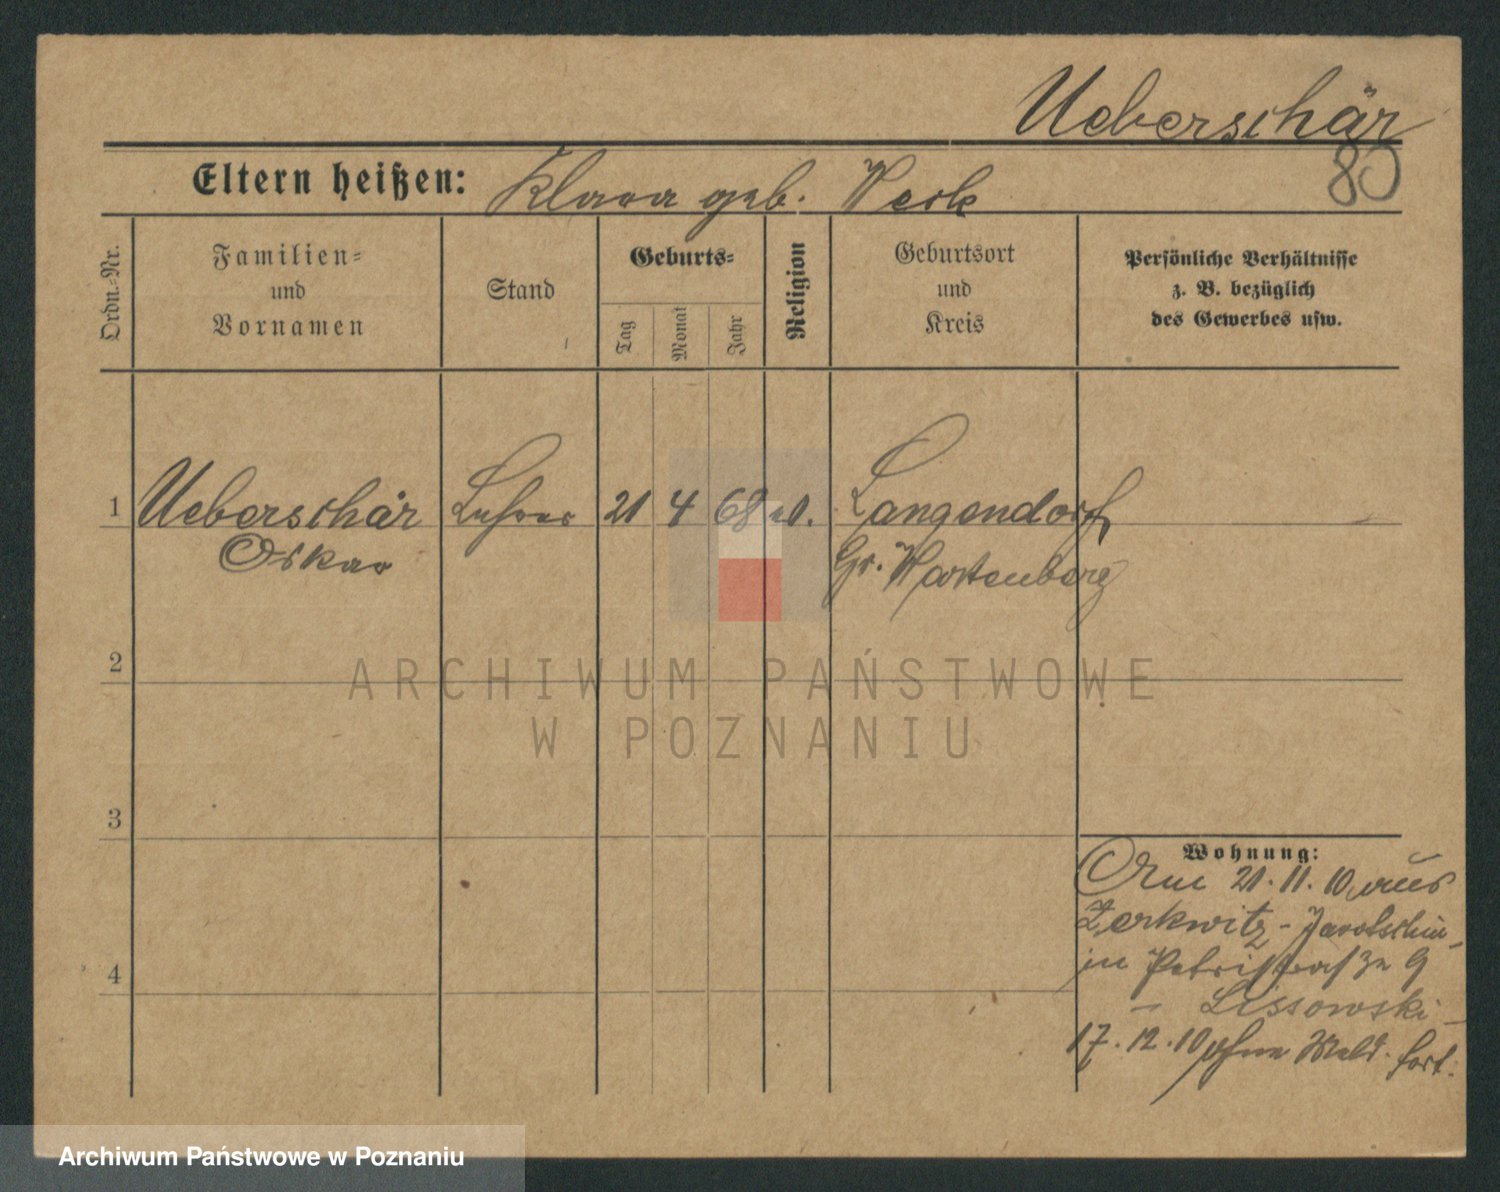 Ueberschär
80
Eltern heißen: Klara geb. Werk
Ordn.-Nr.
Familien-
und
Vornamen
Stand
Geburts-
Tag
Monat
Jahr
Religion
Geburtsort
und
Kreis
Persönliche Verhältnisse
z. B. bezüglich
des Gewerbes usw.
1 Ueberschär Lehrer 21 4 68 ev. Langendorf
Oskar Gr. Wartenberg
2
ARCHIWUM PAŃSTWOWE
W POZNANIU
3
Wohnung:
21.11.10 aus
Zerkwitz - Jarotschin
in Petristraße 9
- Lissowski -
4
17.12.10 ohne Meld. fort.
Archiwum Państwowe w Poznaniu